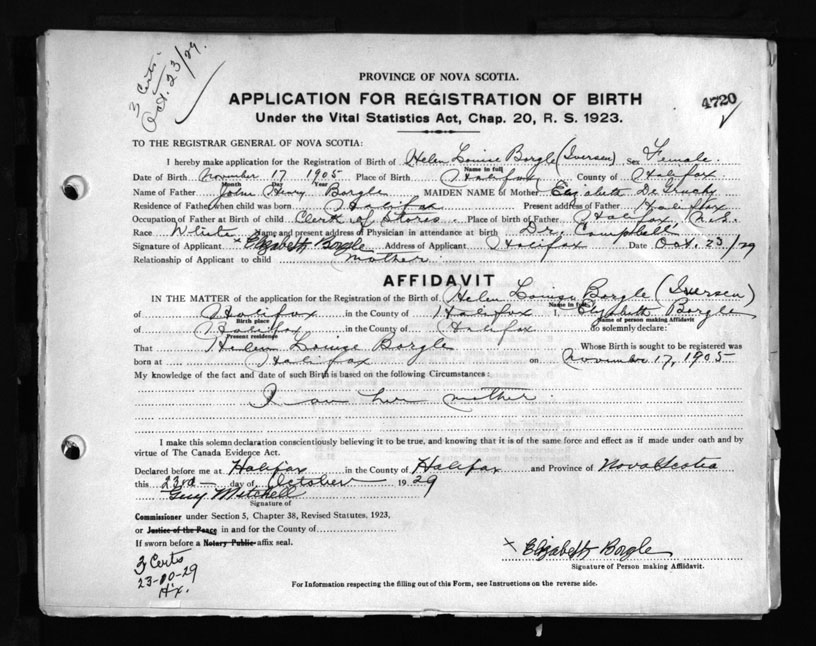 3 Certs
Oct. 23/29.
4720
PROVINCE OF NOVA SCOTIA.
APPLICATION FOR REGISTRATION OF BIRTH
Under the Vital Statistics Act, Chap. 20, R. S. 1923.
TO THE REGISTRAR GENERAL OF NOVA SCOTIA:
I hereby make application for the Registration of Birth of Helen Louise Borgle (Iversen) Sex Female.
Name in full
Date of Birth November 17 1905 Place of Birth Halifax County of Halifax
Month Day Year
Name of Father John Henry Borgle MAIDEN NAME of Mother Elizabeth De Gruchy
Residence of Father when child was born Halifax Present address of Father Halifax
Occupation of Father at Birth of child Clerk of Stores. Place of birth of Father Halifax, N.S.
Race White Name and present address of Physician in attendance at birth Dr. Campbell
Signature of Applicant × Elizabeth Borgle Address of Applicant Halifax Date Oct. 23/29
Relationship of Applicant to child mother.
AFFIDAVIT
IN THE MATTER of the application for the Registration of the Birth of Helen Louise Borgle (Iversen)
Name in full
of Halifax in the County of Halifax I, Elizabeth Borgle
Birth place Name of person making Affidavit
of Halifax in the County of Halifax do solemnly declare:
Present residence
That Helen Louise Borgle Whose Birth is sought to be registered was
born at Halifax on November 17, 1905
My knowledge of the fact and date of such Birth is based on the following Circumstances:
I am her mother.
I make this solemn declaration conscientiously believing it to be true, and knowing that it is of the same force and effect as if made under oath and by
virtue of The Canada Evidence Act.
Declared before me at Halifax in the County of Halifax and Province of Nova Scotia
this 23rd day of October 1929
Guy Mitchell
Signature of
Commissioner under Section 5, Chapter 38, Revised Statutes, 1923,
or Justice of the Peace in and for the County of
If sworn before a Notary Public affix seal.
× Elizabeth Borgle
Signature of Person making Affidavit.
3 Certs
23-10-29
Hx.
For Information respecting the filling out of this Form, see Instructions on the reverse side.